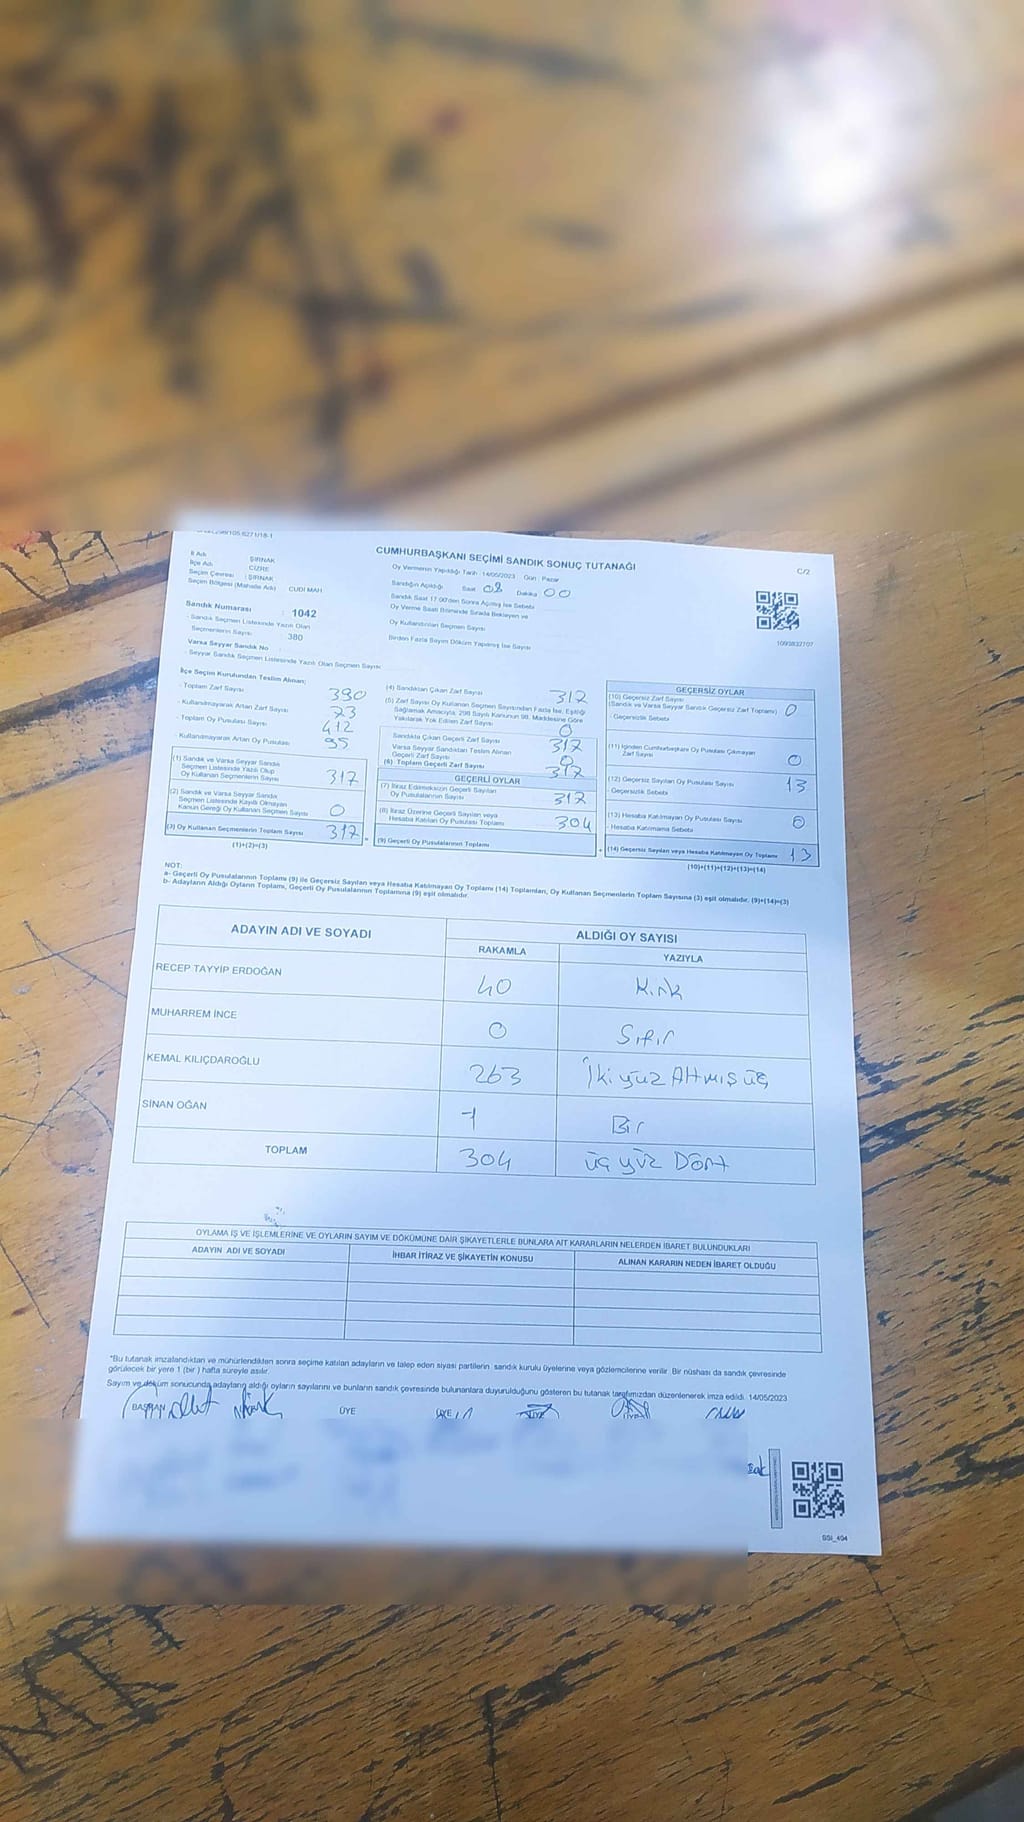 CUMHURBAŞKANI SEÇİMİ SANDIK SONUÇ TUTANAĞI
C/2
İl Adı : ŞIRNAK
İlçe Adı : CİZRE
Seçim Çevresi : ŞIRNAK
Seçim Bölgesi (Mahalle Adı) CUDİ MAH
Sandık Numarası : 1042
- Sandık Seçmen Listesinde Yazılı Olan
Seçmenlerin Sayısı : 380
Varsa Seyyar Sandık No
- Seyyar Sandık Seçmen Listesinde Yazılı Olan Seçmen Sayısı
Oy Vermenin Yapıldığı Tarih 14/05/2023 Gün : Pazar
Sandığın Açıldığı Saat 08 Dakika 00
Sandık Saat 17:00'den Sonra Açılmış İse Sebebi
Oy Verme Saati Bitiminde Sırada Bekleyen ve
Oy Kullandırılan Seçmen Sayısı
Birden Fazla Sayım Döküm Yapılmış İse Sayısı
1093832707
İlçe Seçim Kurulundan Teslim Alınan;
- Toplam Zarf Sayısı 390
- Kullanılmayarak Artan Zarf Sayısı 73
- Toplam Oy Pusulası Sayısı 412
- Kullanılmayarak Artan Oy Pusulası 95
(1) Sandık ve Varsa Seyyar Sandık
Seçmen Listesinde Yazılı Olup
Oy Kullanan Seçmenlerin Sayısı 317
(2) Sandık ve Varsa Seyyar Sandık
Seçmen Listesinde Kayıtlı Olmayan
Kanun Gereği Oy Kullanan Seçmen Sayısı 0
(3) Oy Kullanan Seçmenlerin Toplam Sayısı 317
(1)+(2)=(3)
(4) Sandıktan Çıkan Zarf Sayısı 317
(5) Zarf Sayısı Oy Kullanan Seçmen Sayısından Fazla İse, Eşitliği
Sağlamak Amacıyla, 298 Sayılı Kanunun 98. Maddesine Göre
Yakılarak Yok Edilen Zarf Sayısı 0
Sandıkta Çıkan Geçerli Zarf Sayısı 317
Varsa Seyyar Sandıktan Teslim Alınan
Geçerli Zarf Sayısı 0
(6) Toplam Geçerli Zarf Sayısı 317
GEÇERLİ OYLAR
(7) İtiraz Edilmeksizin Geçerli Sayılan
Oy Pusulalarının Sayısı 317
(8) İtiraz Üzerine Geçerli Sayılan veya
Hesaba Katılan Oy Pusulası Toplamı 304
(9) Geçerli Oy Pusulalarının Toplamı
GEÇERSİZ OYLAR
(10) Geçersiz Zarf Sayısı
(Sandık ve Varsa Seyyar Sandık Geçersiz Zarf Toplamı) 0
- Geçersizlik Sebebi
(11) İçinden Cumhurbaşkanı Oy Pusulası Çıkmayan
Zarf Sayısı 0
(12) Geçersiz Sayılan Oy Pusulası Sayısı 13
- Geçersizlik Sebebi
(13) Hesaba Katılmayan Oy Pusulası Sayısı 0
- Hesaba Katılmama Sebebi
(14) Geçersiz Sayılan veya Hesaba Katılmayan Oy Toplamı 13
(10)+(11)+(12)+(13)=(14)
NOT:
a- Geçerli Oy Pusulalarının Toplamı (9) ile Geçersiz Sayılan veya Hesaba Katılmayan Oy Toplamı (14) Toplamları, Oy Kullanan Seçmenlerin Toplam Sayısına (3) eşit olmalıdır. (9)+(14)=(3)
b- Adayların Aldığı Oyların Toplamı, Geçerli Oy Pusulalarının Toplamına (9) eşit olmalıdır.
ADAYIN ADI VE SOYADI ALDIĞI OY SAYISI
RAKAMLA YAZIYLA
RECEP TAYYİP ERDOĞAN 40 Kırk
MUHARREM İNCE 0 Sıfır
KEMAL KILIÇDAROĞLU 263 İkiyüz Altmışüç
SİNAN OĞAN 1 Bir
TOPLAM 304 üçyüz Dört
OYLAMA İŞ VE İŞLEMLERİNE VE OYLARIN SAYIM VE DÖKÜMÜNE DAİR ŞİKAYETLERLE BUNLARA AİT KARARLARIN NELERDEN İBARET BULUNDUKLARI
ADAYIN ADI VE SOYADI İHBAR İTİRAZ VE ŞİKAYETİN KONUSU ALINAN KARARIN NEDEN İBARET OLDUĞU
*Bu tutanak imzalandıktan ve mühürlendikten sonra seçime katılan adayların ve talep eden siyasi partilerin sandık kurulu üyelerine veya gözlemcilerine verilir. Bir nüshası da sandık çevresinde
görülecek bir yere 1 (bir) hafta süreyle asılır.
Sayım ve döküm sonucunda adayların aldığı oyların sayılarını ve bunların sandık çevresinde bulunanlara duyurulduğunu gösteren bu tutanak tarafımızdan düzenlenerek imza edildi. 14/05/2023
BAŞKAN ÜYE ÜYE ÜYE ÜYE
SSI_404